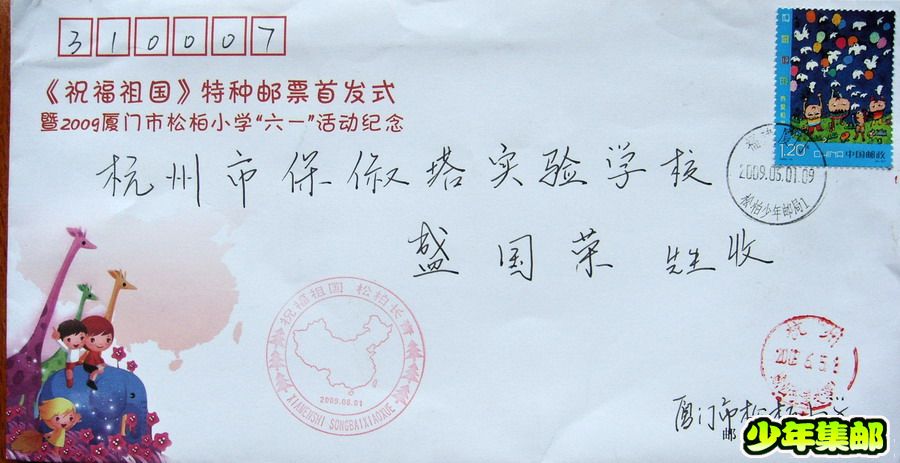 310007
《祝福祖国》特种邮票首发式
暨2009厦门市松柏小学“六一”活动纪念
杭州市保俶塔实验学校
盛国荣 先生收
1.20 CHINA 中国邮政
2009.06.01.09
松柏少年邮局1
祝福祖国 松柏长青
2009.06.01
XIAMENSHI SONGBAIXIAOXUE
杭州
厦门市松柏小学
邮
少年集邮